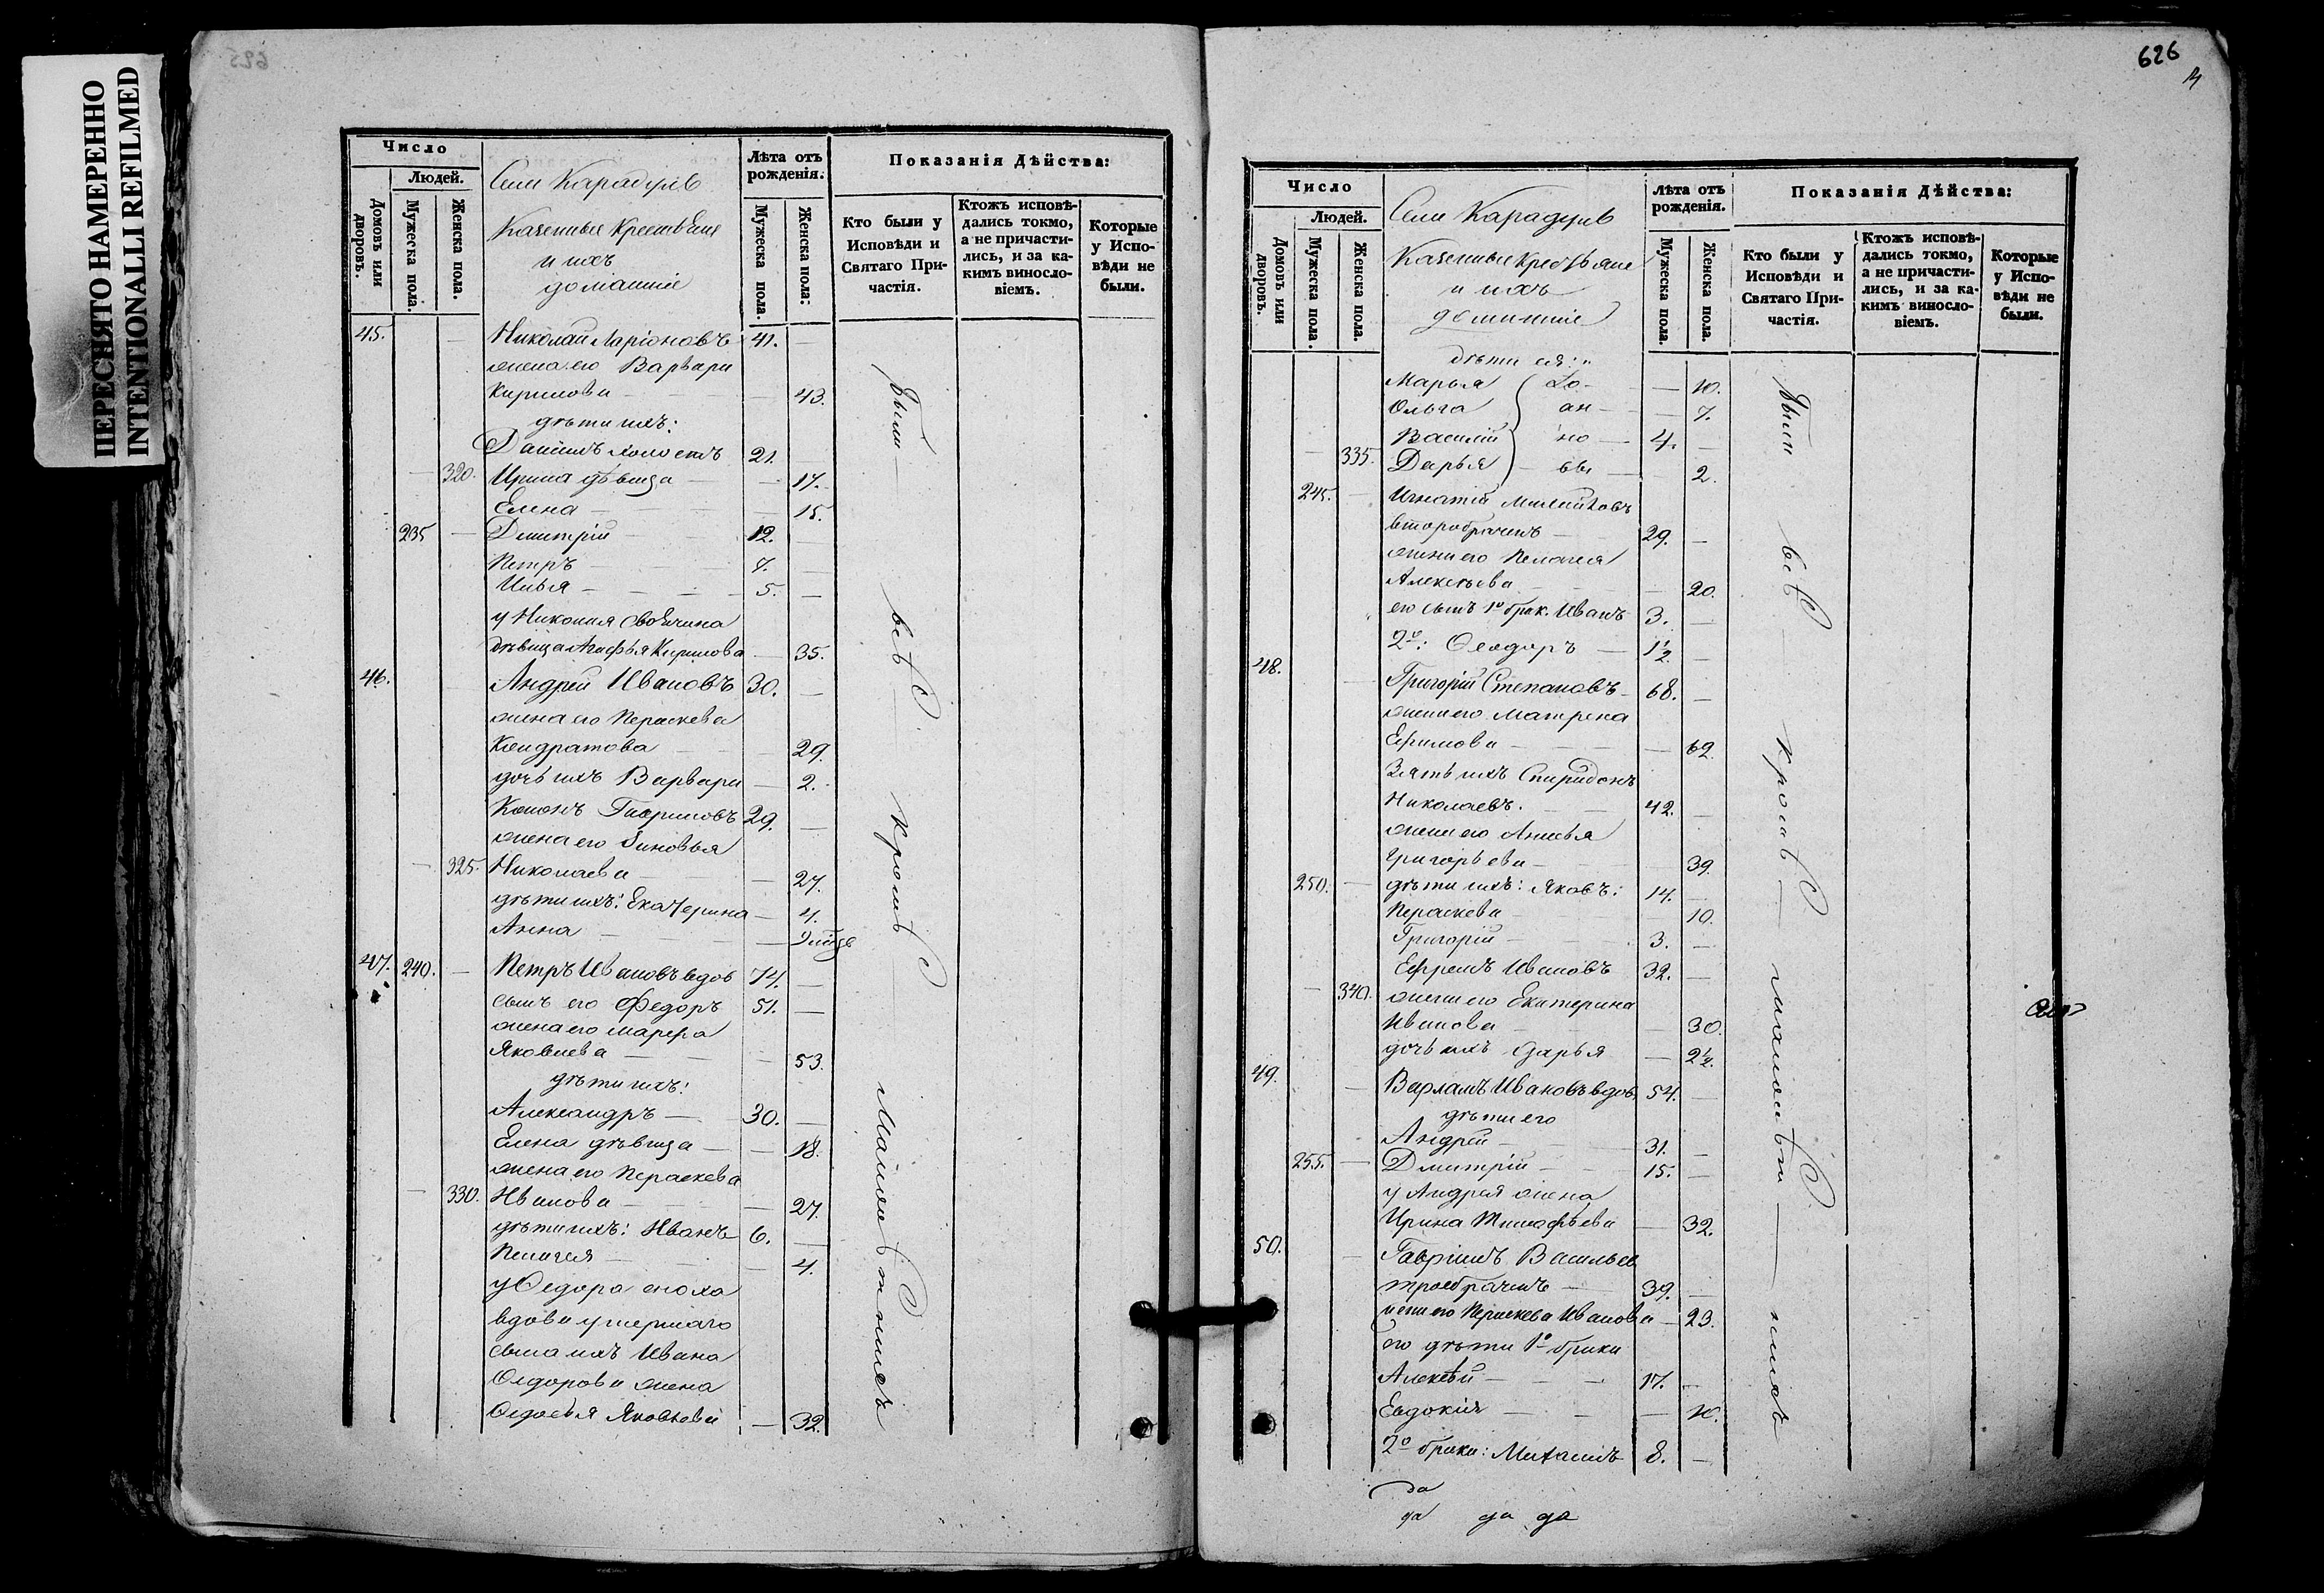 ПЕРЕСНЯТО НАМЕРЕННО
INTENTIONALLI REFILMED
625
Число
Людей.
Домовъ или дворовъ.
Мужеска пола.
Женска пола.
Села Карадулѣ
Казенные Крестьяне
и ихъ
домашніе
Лѣта отъ рожденія.
Мужеска пола.
Женска пола:
Показанія Дѣйства:
Кто были у Исповѣди и Святаго Причастія.
Ктожъ исповѣдались токмо, а не причастились, и за какимъ винословіемъ.
Которые у Исповѣди не были.
45. Николай Ларіоновъ 41.
жена его Варвара
Кирилова 43.
дѣти ихъ:
Даніилъ холостъ 21.
320. Ирина дѣвица 17.
Елена 15.
235 Дмитрій 12.
Петръ 7.
Илья 5.
у Николая своячина
дѣвица Агафья Кирилова 35.
46. Андрей Ивановъ 30.
жена его Параскева
Кондратова 29.
дочь ихъ Варвара 2.
Кононъ Гавриловъ 29.
жена его Зиновья
325. Николаева 27.
дѣти ихъ: Екатерина 4.
Анна
47. 240. Петръ Ивановъ вдов 74.
сынъ его Федоръ 51.
жена его Марфа
Яковлева 53.
дѣти ихъ:
Александръ 30.
Елена дѣвица 18.
жена его Параскева
330. Иванова 27.
дѣти ихъ: Иванъ 6.
Пелагея 4.
у Ѳедора сноха
вдова умершаго
сына ихъ Ивана
Ѳедорова жена
Ѳедосья Яковлева 32.
Были всѣ кромѣ малолѣтнихъ
626
Число
Людей.
Домовъ или дворовъ.
Мужеска пола.
Женска пола.
Села Карадулѣ
Казенные Крестьяне
и ихъ
домашніе
Лѣта отъ рожденія.
Мужеска пола.
Женска пола.
Показанія Дѣйства:
Кто были у Исповѣди и Святаго Причастія.
Ктожъ исповѣдались токмо, а не причастились, и за какимъ винословіемъ.
Которые у Исповѣди не были.
дѣти ея:
Марья 10.
Ольга 7.
Василій 4.
335. Дарья 2.
245. Игнатій Михайловъ
второбраченъ 29.
жена его Пелагея
Алексѣева 20.
его сынъ 1о брак. Иванъ 3.
2о: Ѳеодоръ 1½
48. Григорій Степановъ 68.
жена его Матрена
Ефимова 62.
Зять ихъ Спиридонъ
Николаевъ. 42.
жена его Анисья
Григорьева 39.
250. дѣти ихъ: Яковъ: 14.
Параскева 10.
Григорій 3.
Ефремъ Ивановъ 32.
340. жена его Екатерина
Иванова 30.
дочь ихъ Дарья 2½.
49. Варламъ Ивановъ вдов. 54.
дѣти его
Андрей 31.
255. Дмитрій 15.
у Андрея жена
Ирина Тимофѣева 32.
50. Гавріилъ Васильев
троебраченъ 39.
жена его Параскева Иванова 23.
его дѣти 1о брака
Алексѣй 17.
Евдокія 10.
2о брака: Михаилъ 8.
Были всѣ кромѣ малолѣтнихъ
да
да да да